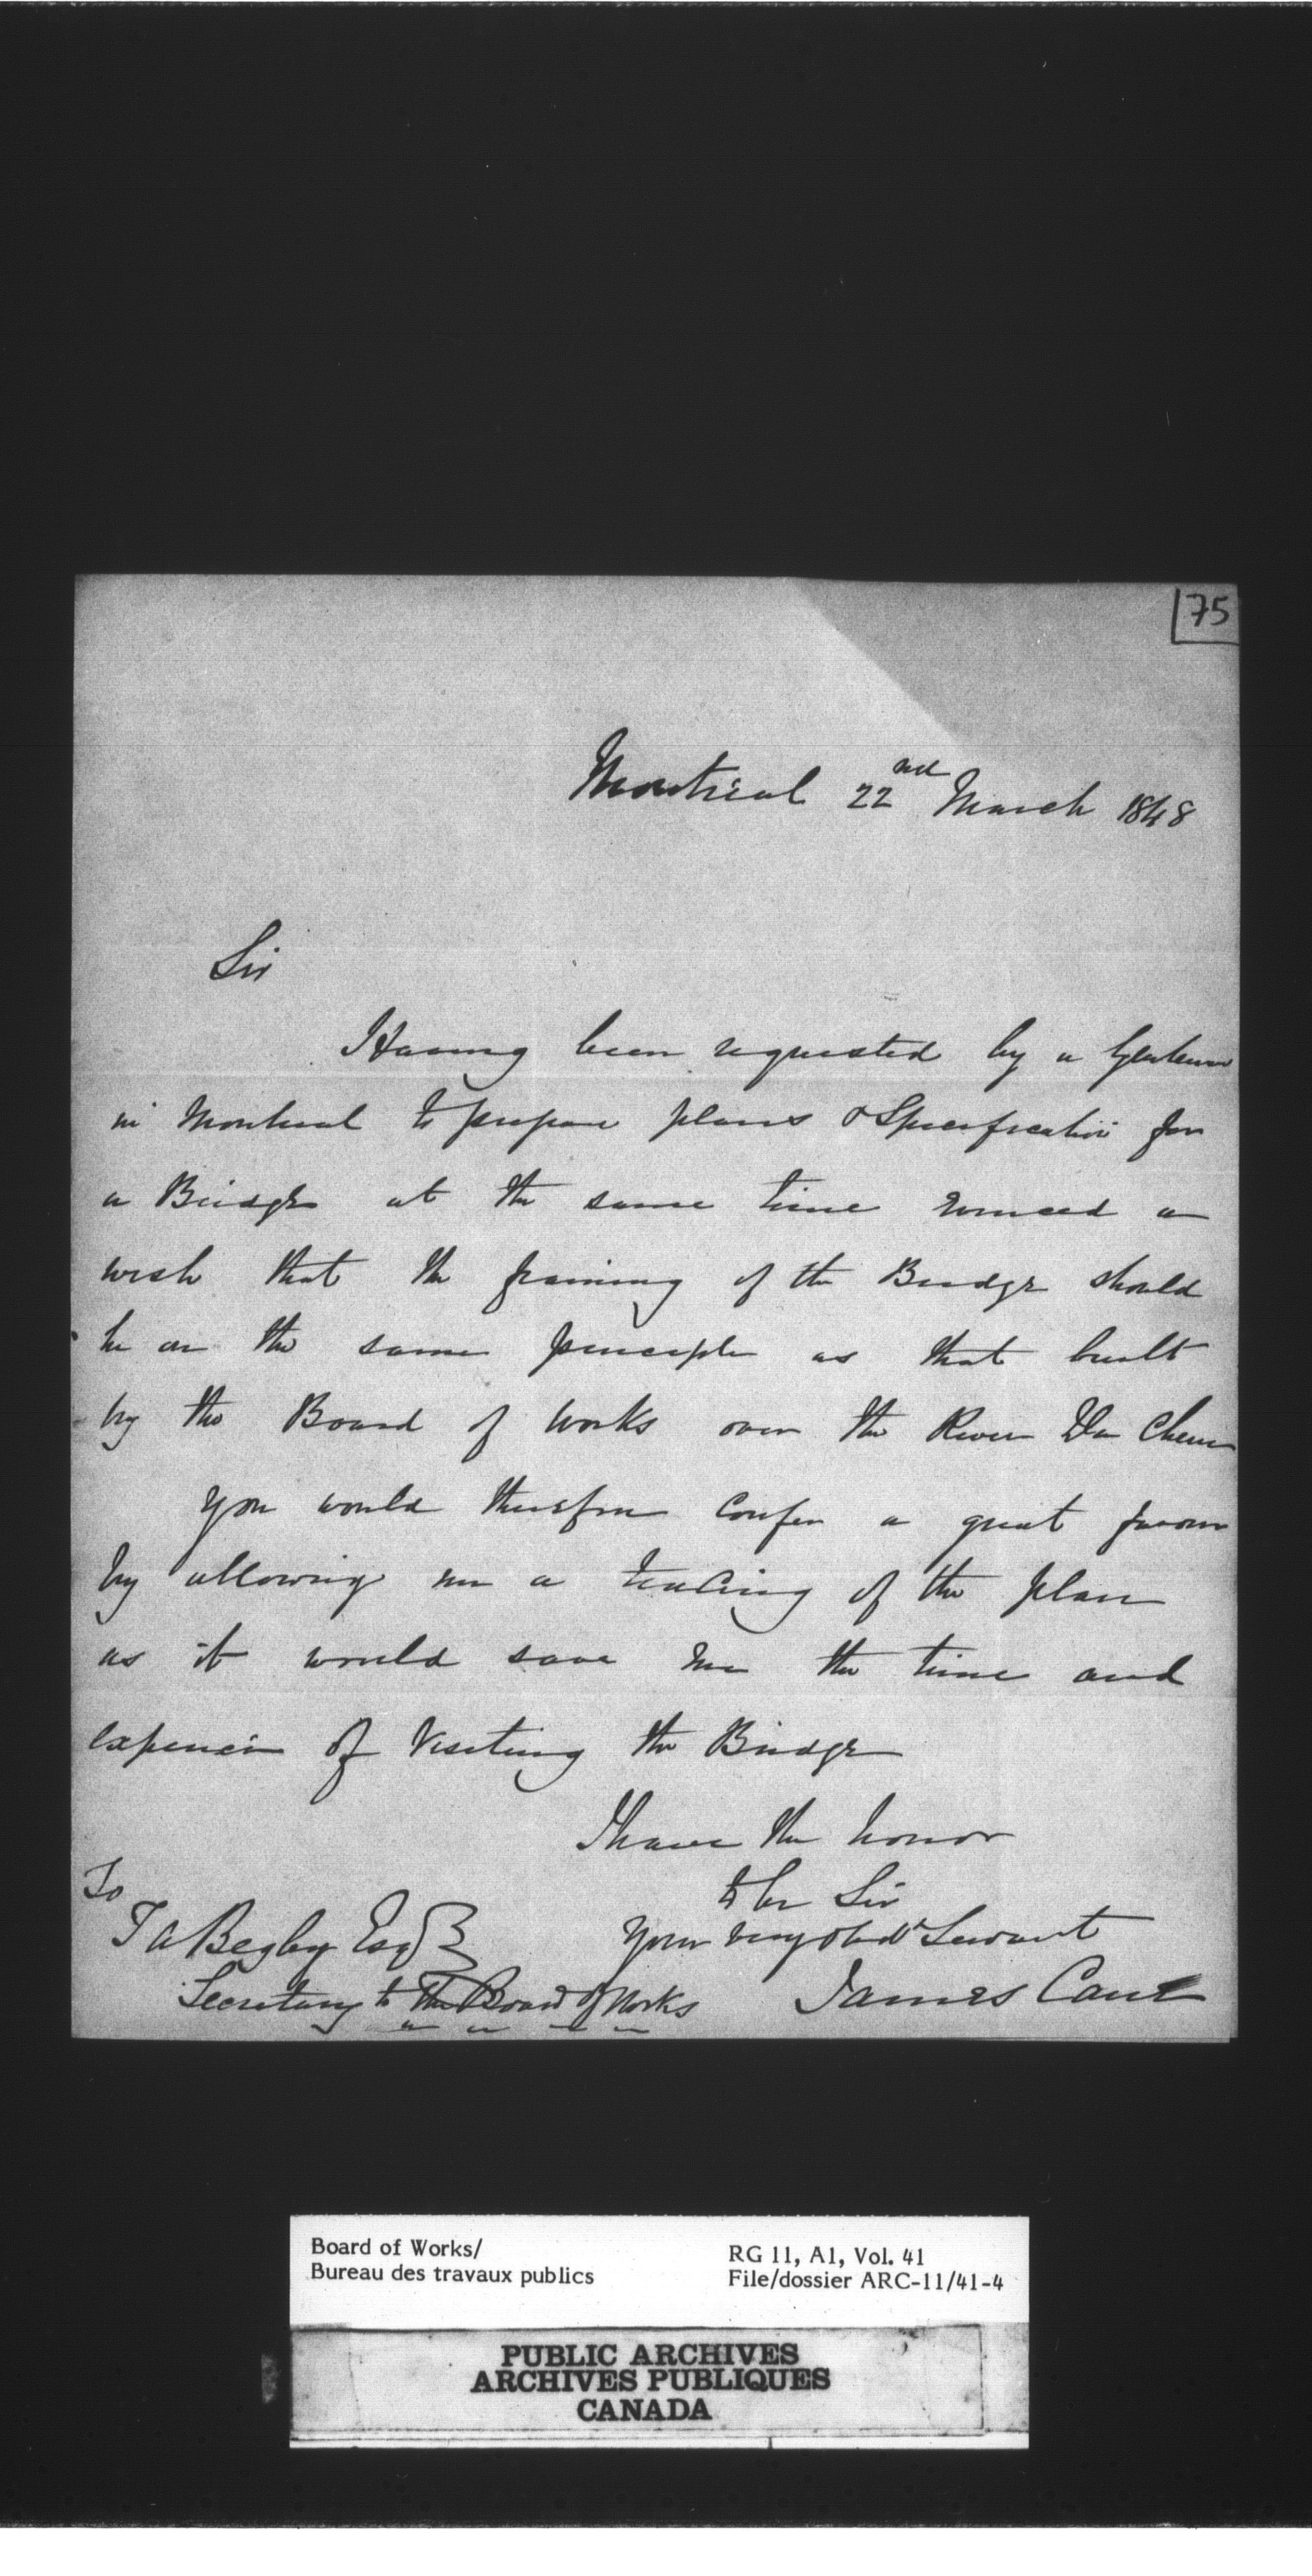 75
Montreal 22nd March 1848
Sir
Having been requested by a Gentleman
in Montreal to prepare plans & Specification for
a Bridge at the same time a
wish that the framing of the Bridge should
be on the same principle as that built
by the Board of Works over the River Du Chene
You would therefore confer a great favour
by allowing me a tracing of the plan
as it would save me the time and
expence of Visiting the Bridge
I have the honor
to be Sir
Your very obedt Servant
James Cant
To
T A Begley Esqr
Secretary to the Board of Works
Board of Works/
Bureau des travaux publics
RG 11, A1, Vol. 41
File/dossier ARC-11/41-4
PUBLIC ARCHIVES
ARCHIVES PUBLIQUES
CANADA